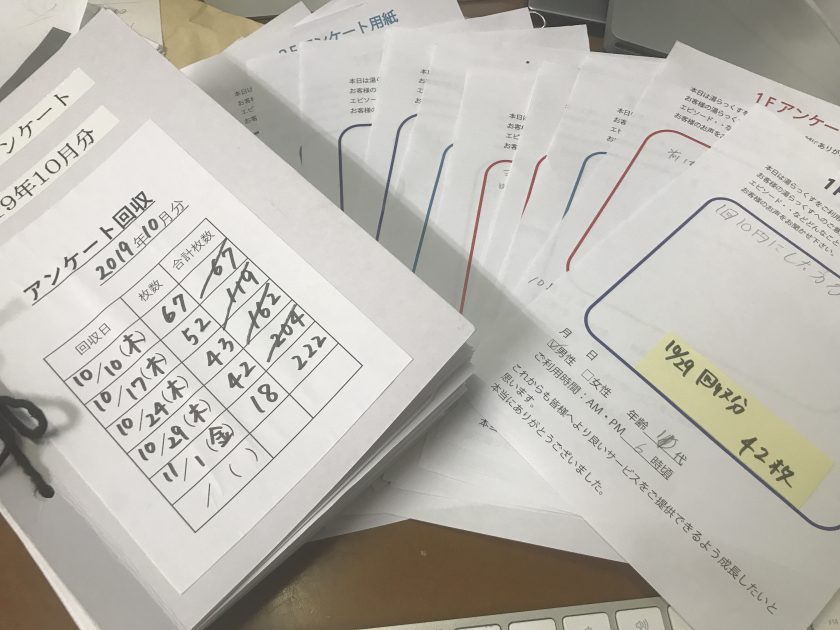 ンケート
19年10月分
アンケート回収
2019年10月分
回収日 枚数 合計枚数
10/10(木) 67 67
10/17(木) 52 119
10/24(木) 43 162
10/29(木) 42 204
11/1(金) 18 222
/ ( )
アンケート用紙
本日
お客
エピ
お客
1Fアンケー
本日は湯らっくすを
お客様の湯らっくす
エピソード・・な
お客様のお声を
本日は湯らっくすをご利用
お客様の湯らっくすへのご意
エピソード・・などどんなこ
お客様のお声をお聞かせ下さい。
10/29 回収分
42枚
月 日
男性 女性 年齢 代
ご利用時間:AM・PM 6 時頃
これからも皆様へより良いサービスをご提供できるよう成長したいと
思います。
本当にありがとうございました。